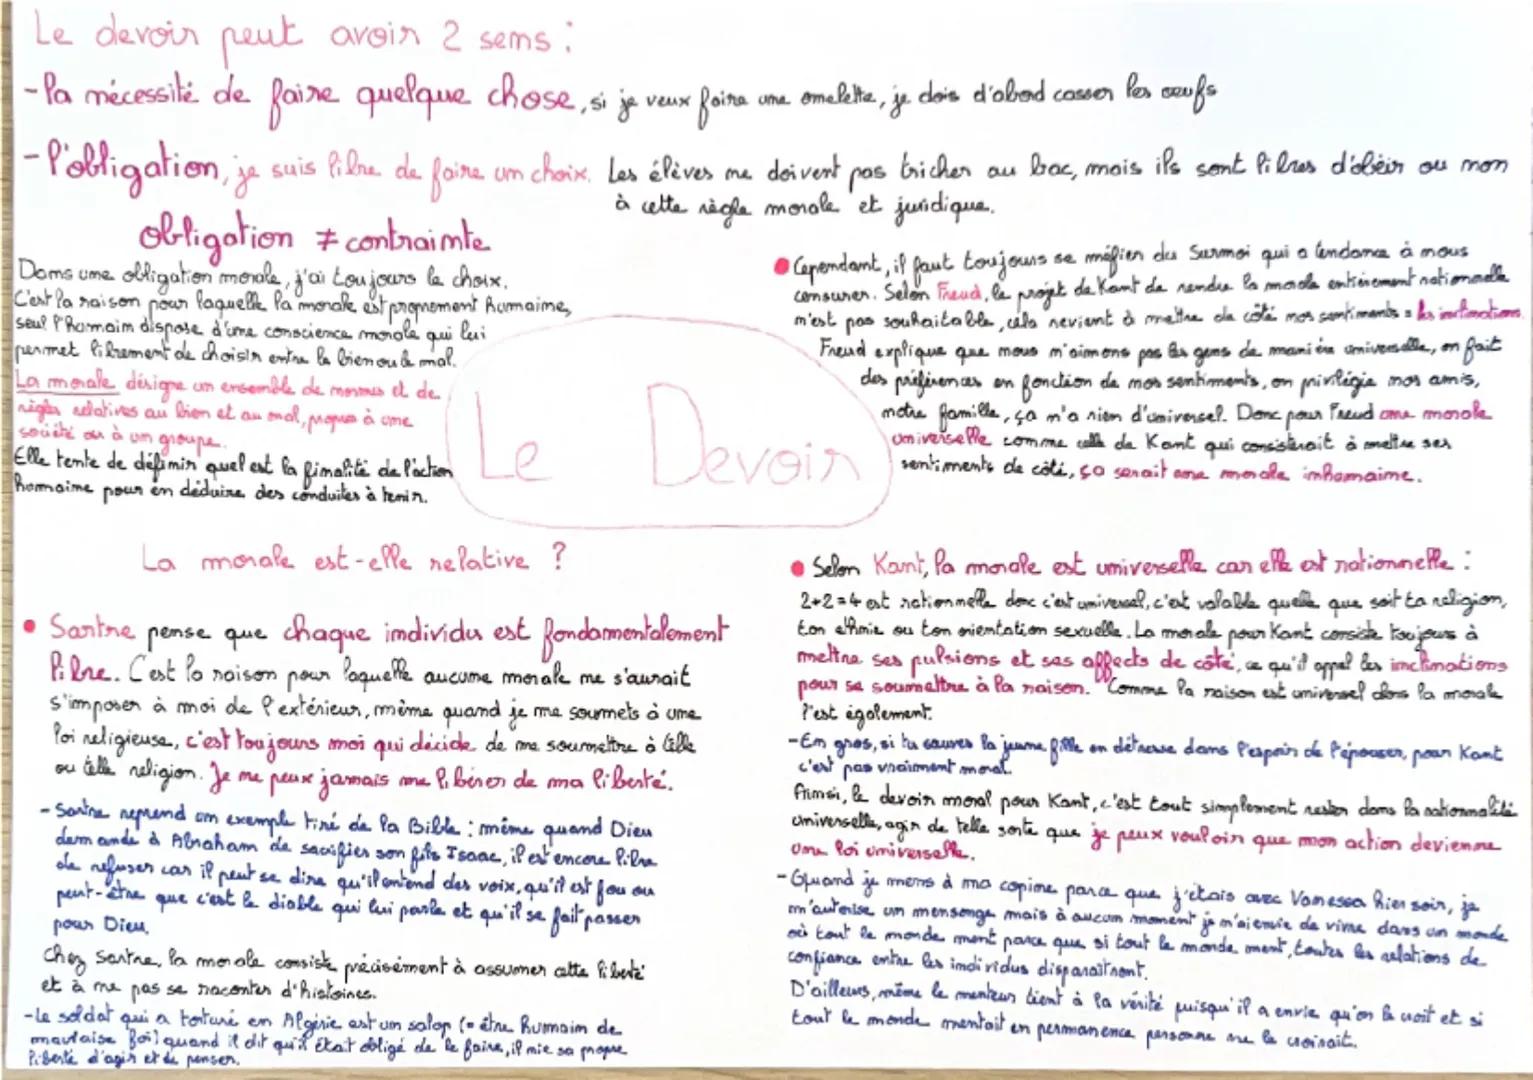 Le devoir peut avoir 2 sens :
- la nécessité de faire quelque chose, si je veux faire une omelette, je dois d'abord casser les oeufs
- l'obligation, je suis libre de faire un choix. Les élèves ne doivent pas tricher au bac, mais ils sont libres d'obéir ou non
à cette règle morale et juridique.
obligation ≠ contrainte
Dans une obligation morale, j'ai toujours le choix.
C'est la raison pour laquelle la morale est proprement humaine,
seul l'humain dispose d'une conscience morale qui lui
permet librement de choisir entre le bien ou le mal.
La morale désigne un ensemble de normes et de
règles relatives au bien et au mal, propres à une
société ou à un groupe.
Elle tente de définir quel est la finalité de l'action
humaine pour en déduire des conduites à tenir.
Le Devoir
• Cependant, il faut toujours se méfier du Surmoi qui a tendance à nous
censurer. Selon Freud, le projet de Kant de rendre la morale entièrement rationnelle
n'est pas souhaitable, cela revient à mettre de côté nos sentiments = les inclinations.
Freud explique que nous n'aimons pas les gens de manière universelle, on fait
des préférences en fonction de nos sentiments, on privilégie nos amis,
notre famille, ça n'a rien d'universel. Donc pour Freud une morale
universelle comme celle de Kant qui consisterait à mettre ses
sentiments de côté, ça serait une morale inhumaine.
La morale est-elle relative ?
• Sartre pense que chaque individu est fondamentalement
libre. C'est la raison pour laquelle aucune morale ne s'aurait
s'imposer à moi de l'extérieur, même quand je me soumets à une
loi religieuse, c'est toujours moi qui décide de me soumettre à telle
ou telle religion. Je ne peux jamais me libérer de ma liberté.
- Sartre reprend un exemple tiré de la Bible : même quand Dieu
demande à Abraham de sacrifier son fils Isaac, il est encore libre
de refuser car il peut se dire qu'il entend des voix, qu'il est fou ou
peut-être que c'est le diable qui lui parle et qu'il se fait passer
pour Dieu.
Chez Sartre, la morale consiste précisément à assumer cette liberté
et à ne pas se raconter d'histoires.
- Le soldat qui a torturé en Algérie est un salop (= être humain de
mauvaise foi) quand il dit qu'il était obligé de le faire, il nie sa propre
liberté d'agir et de penser.
• Selon Kant, la morale est universelle car elle est rationnelle :
2+2=4 est rationnelle donc c'est universel, c'est valable quelle que soit ta religion,
ton ethnie ou ton orientation sexuelle. La morale pour Kant consiste toujours à
mettre ses pulsions et ses affects de côté, ce qu'il appel les inclinations
pour se soumettre à la raison. Comme la raison est universel alors la morale
l'est également.
- En gros, si tu sauves la jeune fille en détresse dans l'espoir de l'épouser, pour Kant
c'est pas vraiment moral.
Ainsi, le devoir moral pour Kant, c'est tout simplement rester dans la rationnalité
universelle, agir de telle sorte que je peux vouloir que mon action devienne
une loi universelle.
- Quand je mens à ma copine parce que j'étais avec Vanessa hier soir, je
m'autorise un mensonge mais à aucun moment je n'ai envie de vivre dans un monde
où tout le monde ment parce que si tout le monde ment, toutes les relations de
confiance entre les individus disparaîtront.
D'ailleurs, même le menteur tient à la vérité puisqu'il a envie qu'on le croit et si
tout le monde mentait en permanence personne ne le croirait.